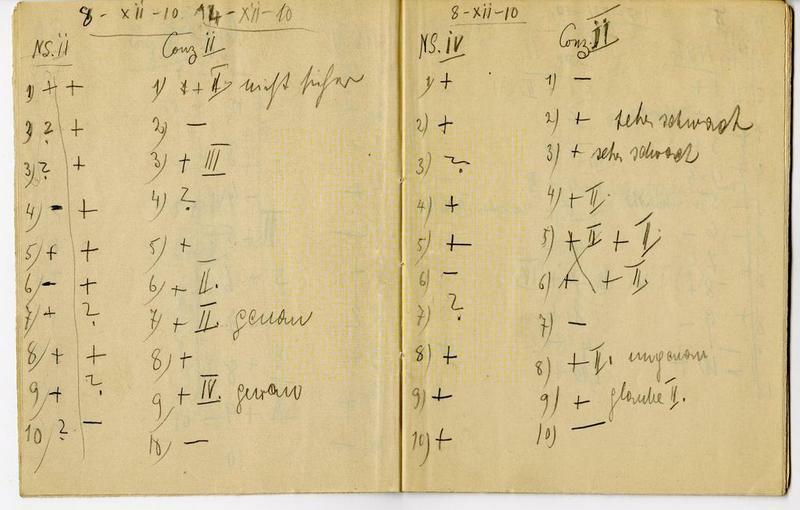 8 - XII - 10 14 - XII - 10
NS. II Conz II
1) + + 1) + + II. nicht sicher
2) ? + 2) —
3) ? + 3) + III
4) - + 4) ?
5) + + 5) +
6) - + 6) + II.
7) + ? 7) + II. genau
8) + + 8) +
9) + ? 9) + IV. genau
10) ? — 10) —
8 - XII - 10
NS. IV Conz. II
1) + 1) —
2) + 2) + sehr schwach
3) ? 3) + sehr schwach
4) + 4) + II.
5) + 5) + II + II.
6) - 6) + + II.
7) ? 7) —
8) + 8) + II. ungenau
9) + 9) + glaube II.
10) + 10) —